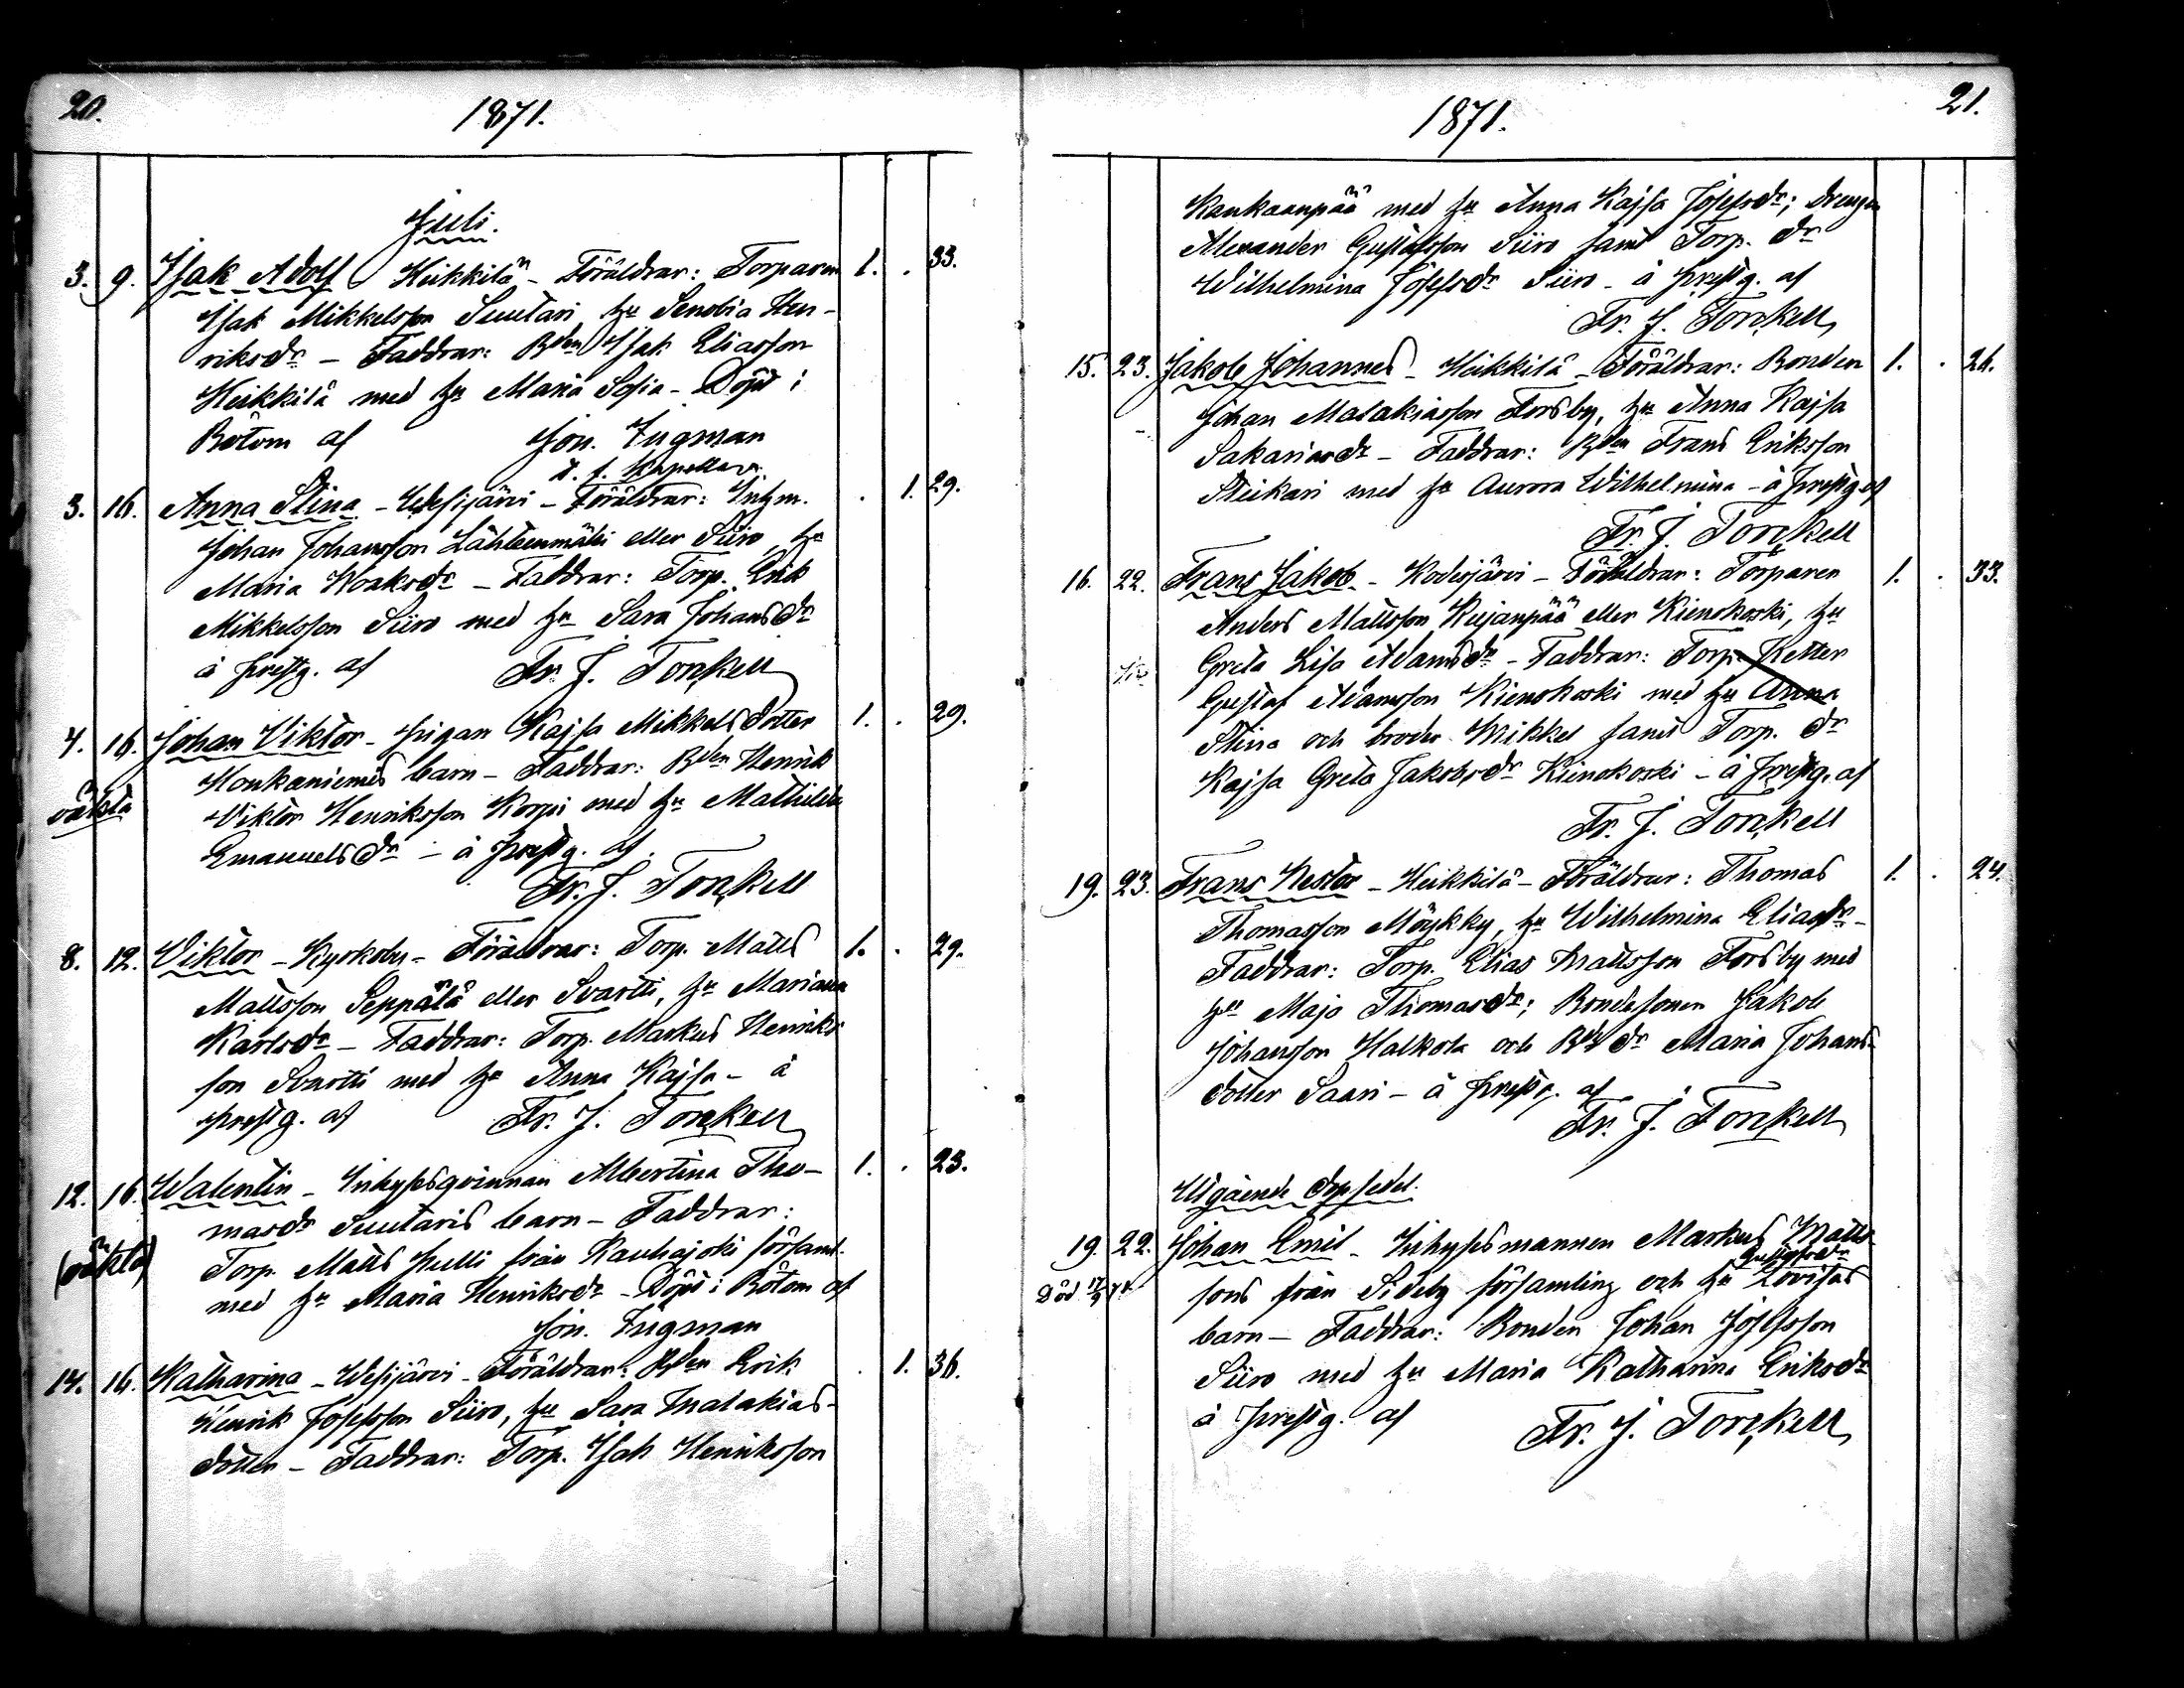 20.
1871.
Juli.
3. 9. Isak Adolf Heikkilä - Föräldrar: Torparen 1. . 33.
Isak Mikkelsson Suutari hu Senobia Hen-
riksdr - Faddrar: Bden Isak Eliasson
Heikkilä med hu Maria Sofia - Döpt i
Bötom af Jon. Ingman
t. f. Kapellan
3. 16. Anna Stina - Wesijärvi - Föräldrar: Inhm. . 1. 29.
Johan Johansson Lähteenmäki eller Siiro, hu
Maria Noaksdr - Faddrar: Torp. Erik
Mikkelsson Siiro med hu Sara Johansdr
å prestg. af Fr. J. Tonkell
4. 16. Johan Viktor - pigan Kajsa Mikkelsdotter 1. . 29.
Honkaniemis barn - Faddrar: Bden Henrik
oäkta Viktor Henriksson Korpi med hu Mathilda
Emanuelsdr - å prestg. af
Fr. J. Tonkell
8. 12. Viktor - Kyrkoby - Föräldrar: Torp. Matts 1. . 29.
Mattsson Seppälä eller Svartti, hu Mariana
Karlsdr - Faddrar: Torp. Markus Henriks
son Svartti med hu Anna Kajsa - å
prestg. af Fr. J. Tonkell
12. 16. Walentin - Inhysesqvinnan Albertina Tho- 1. . 23.
masdr Suutaris barn - Faddrar:
(oäkta) Torp. Matts Hulli från Kauhajoki församl.
med hu Maria Henriksdr - Döpt i Bötom af
Jon. Ingman
14. 16. Katharina - Wesijärvi - Föräldrar: Bden Erik . 1. 36.
Henrik Josefsson Siiro, hu Sara Malakias-
dotter - Faddrar: Torp. Isak Henriksson
1871.
21.
Kankaanpää med hu Anna Kajsa Josefsdr; Drengen
Alexander Gustafsson Siiro samt Torp. dr
Wilhelmina Josefsdr Siiro - å prestg. af
Fr. J. Tonkell
15. 23. Jakob Johannes - Heikkilä - Föräldrar: Bonden 1. . 26.
Johan Malakiasson Forsby, hu Anna Kajsa
Sakariasdr - Faddrar: Bden Frans Eriksson
Steikari med hu Aurora Wilhelmina - å prestg. af
Fr. J. Tonkell
16. 22. Frans Jakob - Kodesjärvi - Föräldrar: Torparen 1. . 33.
Anders Mattsson Kujanpää eller Kienokoski, hu
Greta Lisa Adamsdr - Faddrar: Torp. Ketter
Gustaf Adamsson Kienokoski med hu Anna
Stina och broder Mikkel samt Torp. dr
Kajsa Greta Jakobsdr Kienokoski - å prestg. af
Fr. J. Tonkell
19. 23. Frans Nestor - Heikkilä - Föräldrar: Thomas 1. . 24.
Thomasson Möykky, hu Wilhelmina Eliasdr -
Faddrar: Torp. Elias Mattsson Forsby med
hu Maja Thomasdr; Bondesonen Jakob
Johansson Halkola och Bds dr Maria Johans-
dotter Saari - å prestg. af
Fr. J. Tonkell
Utgående dopsedel.
19. 22. Johan Emil - Inhysesmannen Markus Matts-
Gustafsdr
Död 17/9 74 sons från Sideby församling och hu Lovisas
barn - Faddrar: Bonden Johan Josefsson
Siiro med hu Maria Katharina Eriksdr
å prestg. af Fr. J. Tonkell